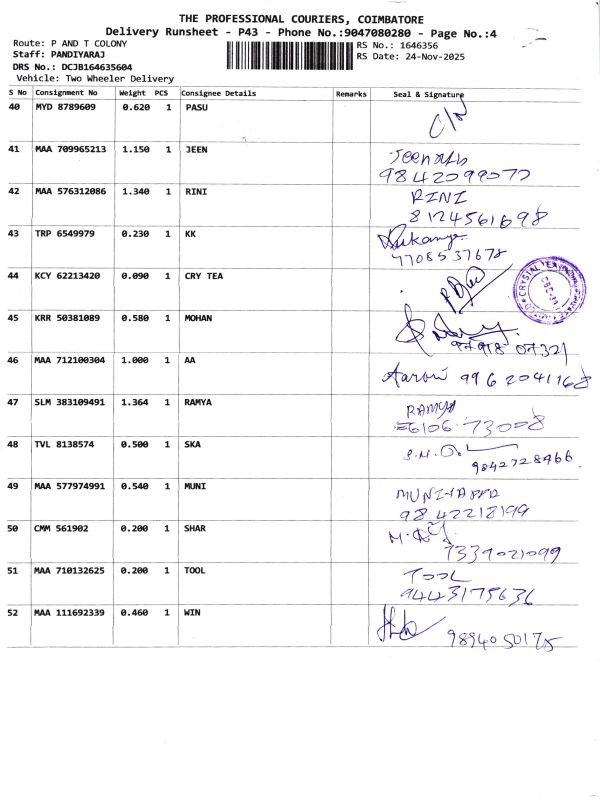 THE PROFESSIONAL COURIERS, COIMBATORE
Delivery Runsheet - P43 - Phone No.:9047080280 - Page No.:4
Route: P AND T COLONY
Staff: PANDIYARAJ
DRS No.: DCJB164635604
Vehicle: Two Wheeler Delivery
RS No.: 1646356
RS Date: 24-Nov-2025
S No Consignment No Weight PCS Consignee Details Remarks Seal & Signature
40 MYD 8789609 0.620 1 PASU
41 MAA 709965213 1.150 1 JEEN
9842099077
42 MAA 576312086 1.340 1 RINI RINI
8124561698
43 TRP 6549979 0.230 1 KK
7708537678
44 KCY 62213420 0.090 1 CRY TEA
45 KRR 50381089 0.580 1 MOHAN
07321
46 MAA 712100304 1.000 1 AA
9962041168
47 SLM 383109491 1.364 1 RAMYA RAMYA
73008
48 TVL 8138574 0.500 1 SKA
9842728466
49 MAA 577974991 0.540 1 MUNI MUNIYAPPA
9842218199
50 CMM 561902 0.200 1 SHAR
7339021099
51 MAA 710132625 0.200 1 TOOL TOOL
9443175636
52 MAA 111692339 0.460 1 WIN
9894050175